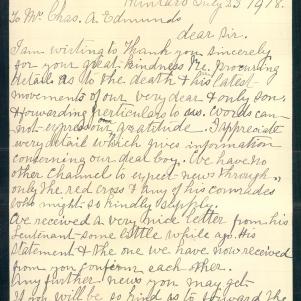 July 25 1918.
To Mr. Chas. A. Edmunds
dear Sir.
I am wirting to thank you sincerely
for your great kindness re procuring
details as to the death & his latest
movements of our very dear & only son,
& forwarding perticulers to us. Words can
not express our gratitude. I appreciate
very detail which gives information
concerning our dear boy. We have no
other channel to expect news through,
only the red cross & any of his comrades
who might so kindly supply.
We received a very nice letter from his
Lieutenant some little while ago. His
Statement & the one we have now received
from you confirm each other.
Any further news you may get
if you will be so kind as to forward the